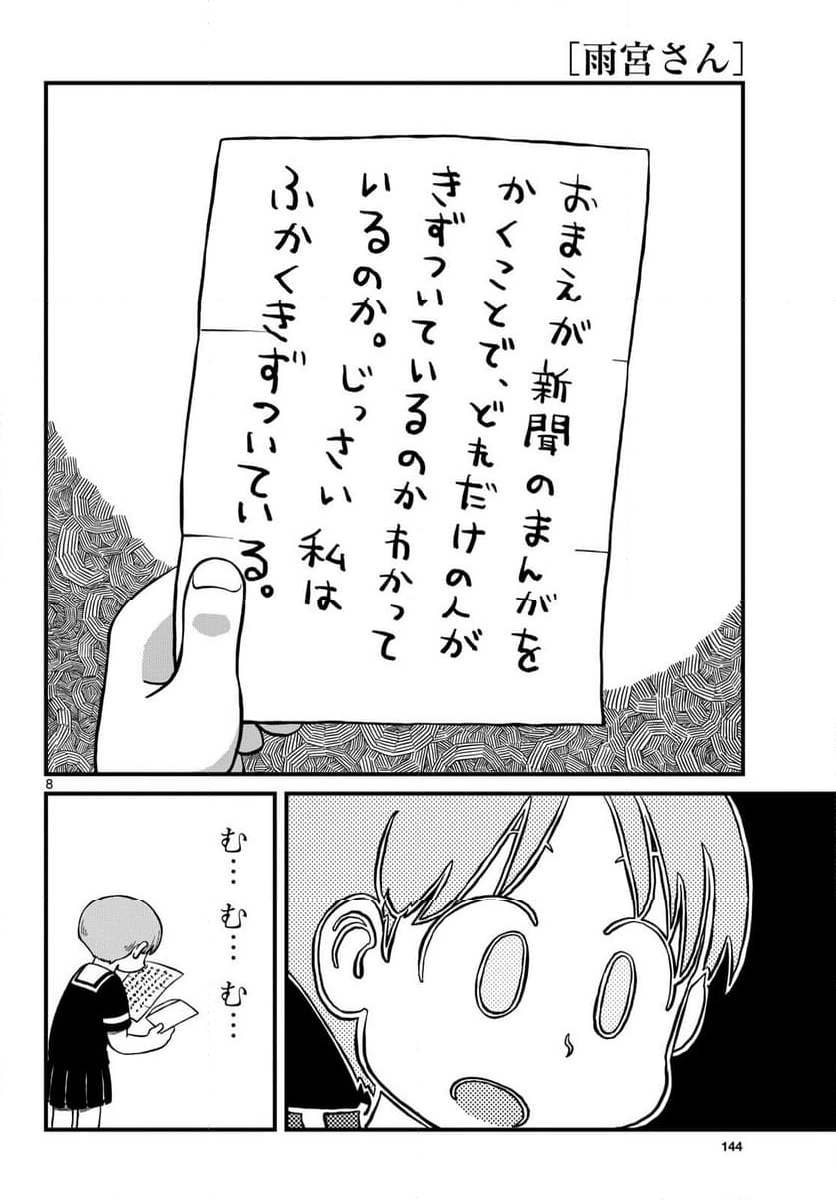 [雨宮さん]
おまえが新聞のまんがを
かくことで、どれだけの人が
きずついているのかわかって
いるのか。じっさい私は
ふかくきずついている。
8
む…む…む…
144